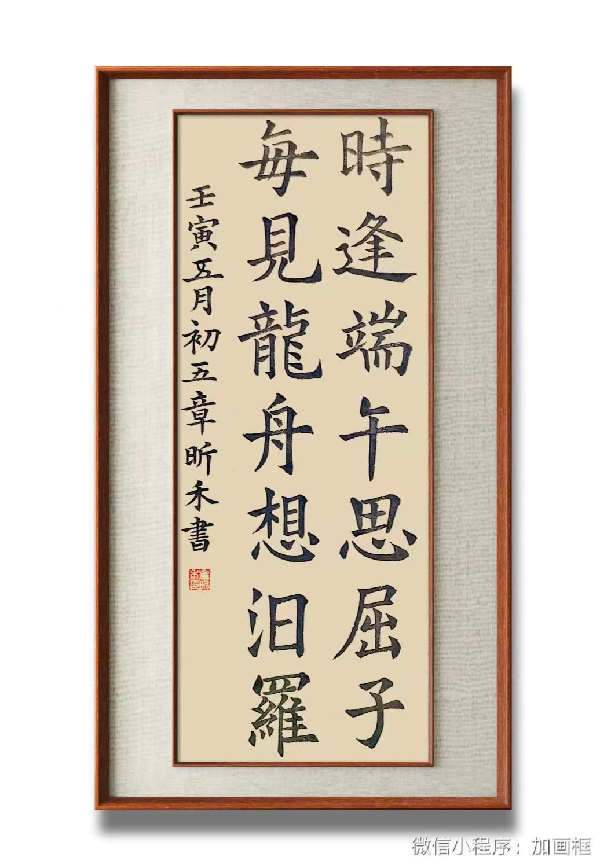 時逢端午思屈子
每見龍舟想汨羅
壬寅五月初五章昕禾書
微信小程序：加画框